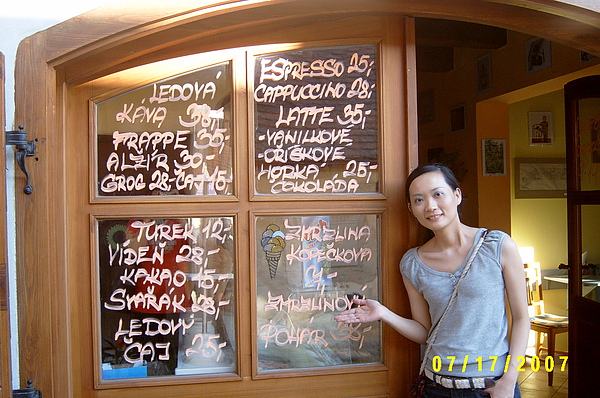 LEDOVÁ
KÁVA 38,-
FRAPPE 35,-
ALŽÍR 30,-
GROG 28,- ČAJ 15,-
ESPRESSO 25,-
CAPPUCCINO 28,-
LATTE 35,-
-VANILKOVÉ
-OŘÍŠKOVÉ
HORKÁ 25,-
ČOKOLÁDA
TUREK 12,-
VÍDEŇ 28,-
KAKAO 15,-
SVAŘÁK 28,-
LEDOVÝ
ČAJ 25,-
ZMRZLINA
KOPEČKOVÁ
7,-
ZMRZLINOVÝ
POHÁR 38,-
07/17/2007